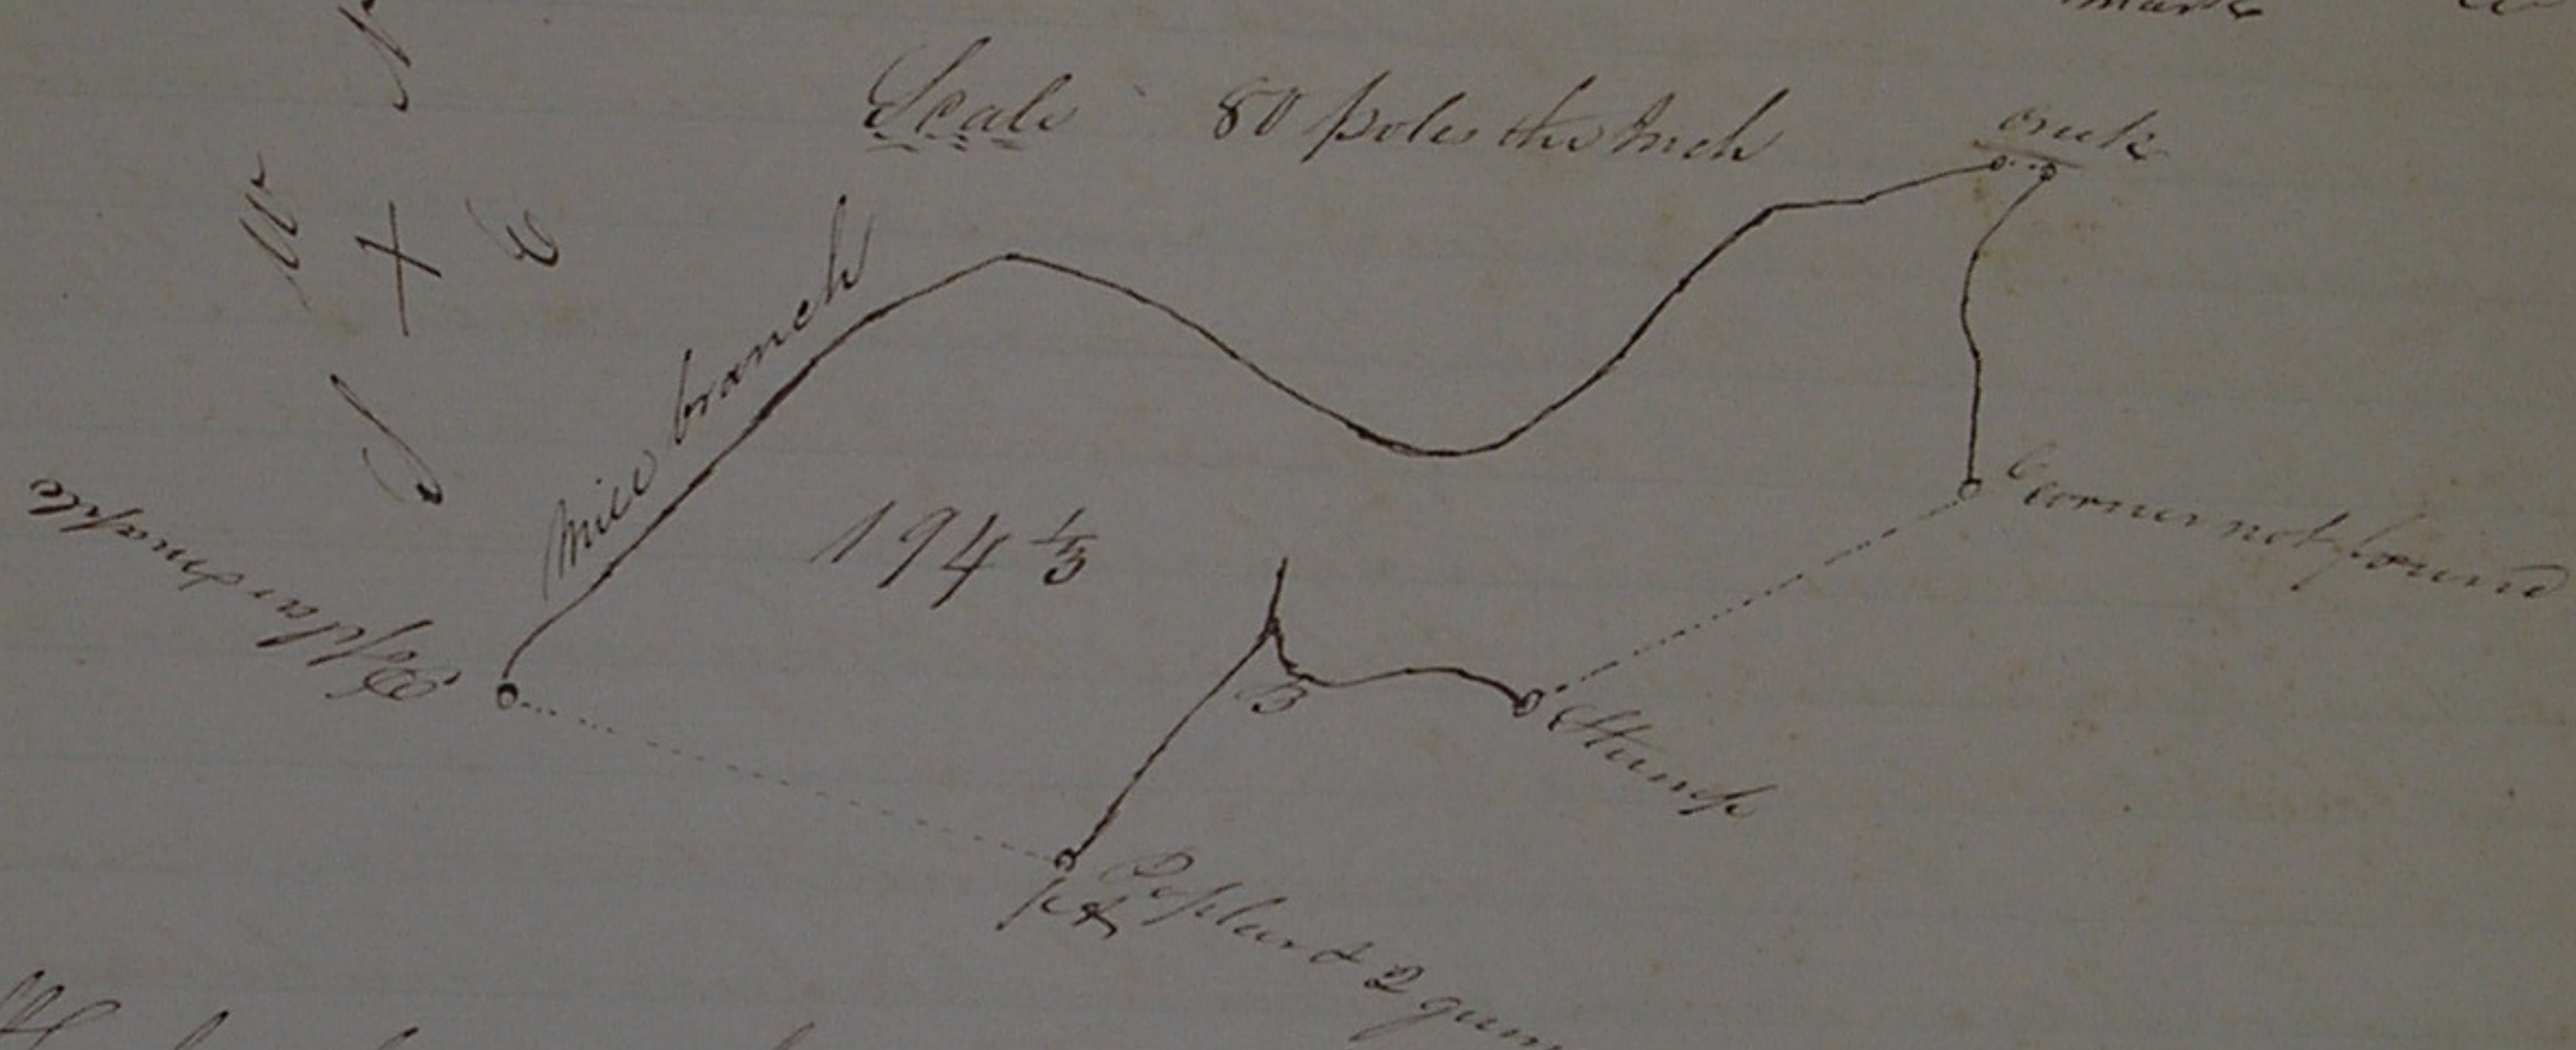 mark
Scale 80 poles the Inch
creek
N
W
E
S
Mill branch
194 1/3
Corner not found
Poplar & maple
B
Stump
Poplar & 2 gum